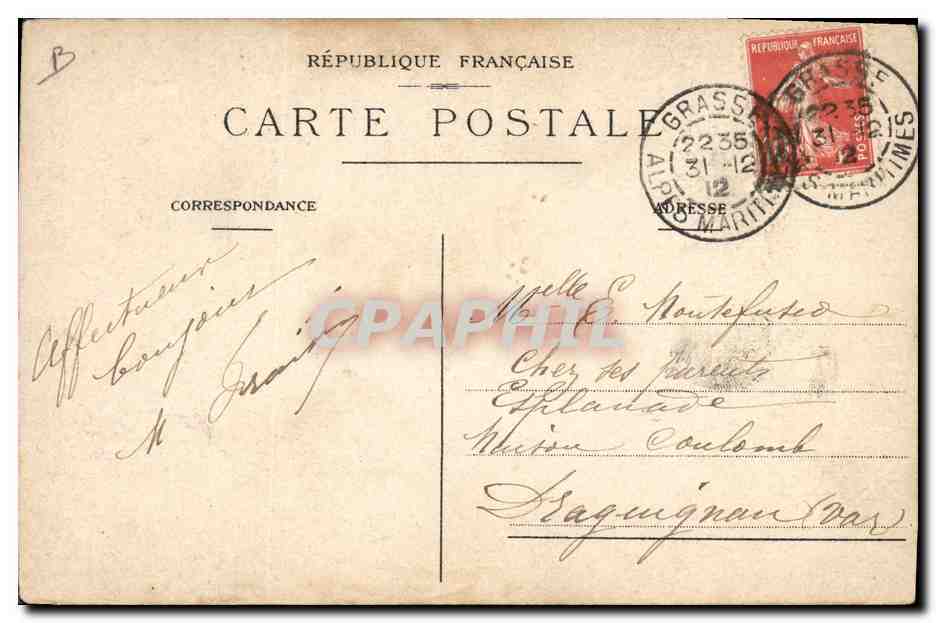 B
RÉPUBLIQUE FRANÇAISE
CARTE POSTALE
REPUBLIQUE FRANÇAISE
POSTES
GRASSE
22 35
31 -12
12
ALPES MARITIMES
GRASSE
22 35
31 -12
12
ALPES MARITIMES
CORRESPONDANCE
ADRESSE
Affectueux
bonjour
M
CPAPHIL
Melle E. Montefusco
Chez ses parents
Esplanade
Maison Coulomb
Draguignan (Var)